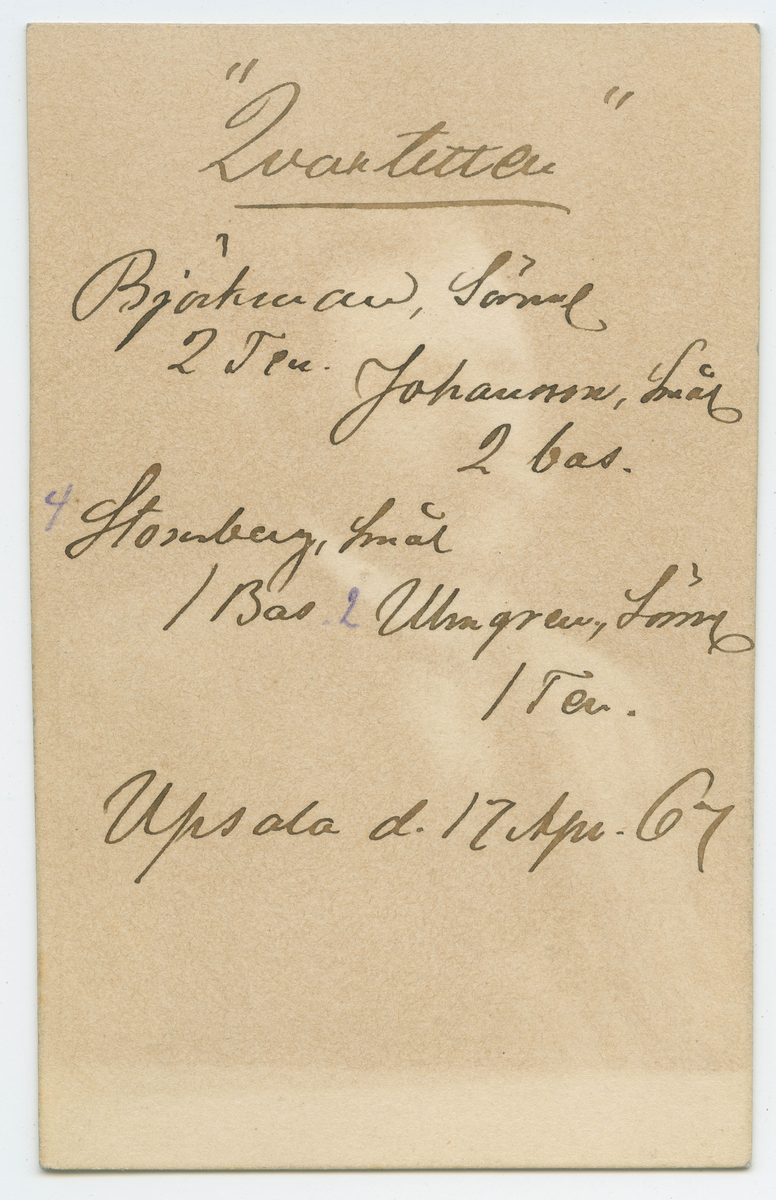 "Qvartetten"
Björkman, Sörml
2 Ten.
Johansson, Smål
2 bas.
4 Stormberg, Smål
1 Bas. 2 Ulmgren, Sörml
1 Ten.
Upsala d. 17 Apr. 67